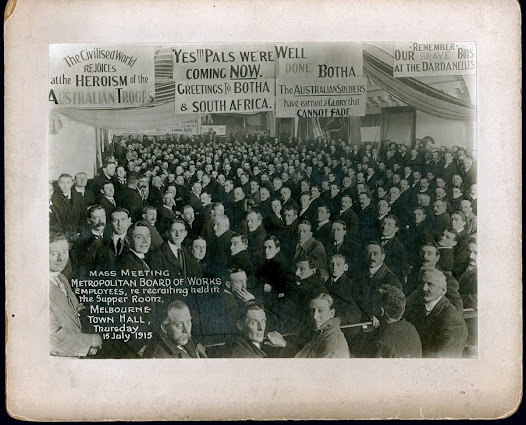 The Civilised World
REJOICES
at the HEROISM of the
AUSTRALIAN TROOPS
YES!!! PALS WE'RE
COMING NOW.
GREETINGS TO BOTHA
& SOUTH AFRICA.
WELL
DONE BOTHA.
THE AUSTRALIAN SOLDIERS
have earned a GLORY that
CANNOT FADE.
REMEMBER
OUR BRAVE BOYS
AT THE DARDANELLES
MASS MEETING
METROPOLITAN BOARD OF WORKS
EMPLOYEES, re recruiting held in
the Supper Room,
MELBOURNE
TOWN HALL,
Thursday
15 July 1915